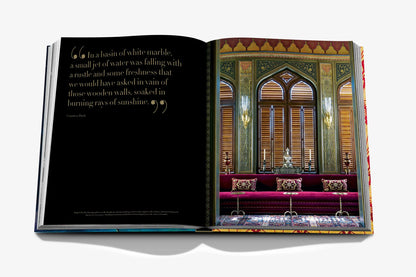 “In a basin of white marble,
a small jet of water was falling with
a rustle and some freshness that
we would have asked in vain of
those wooden walls, soaked in
burning rays of sunshine.”